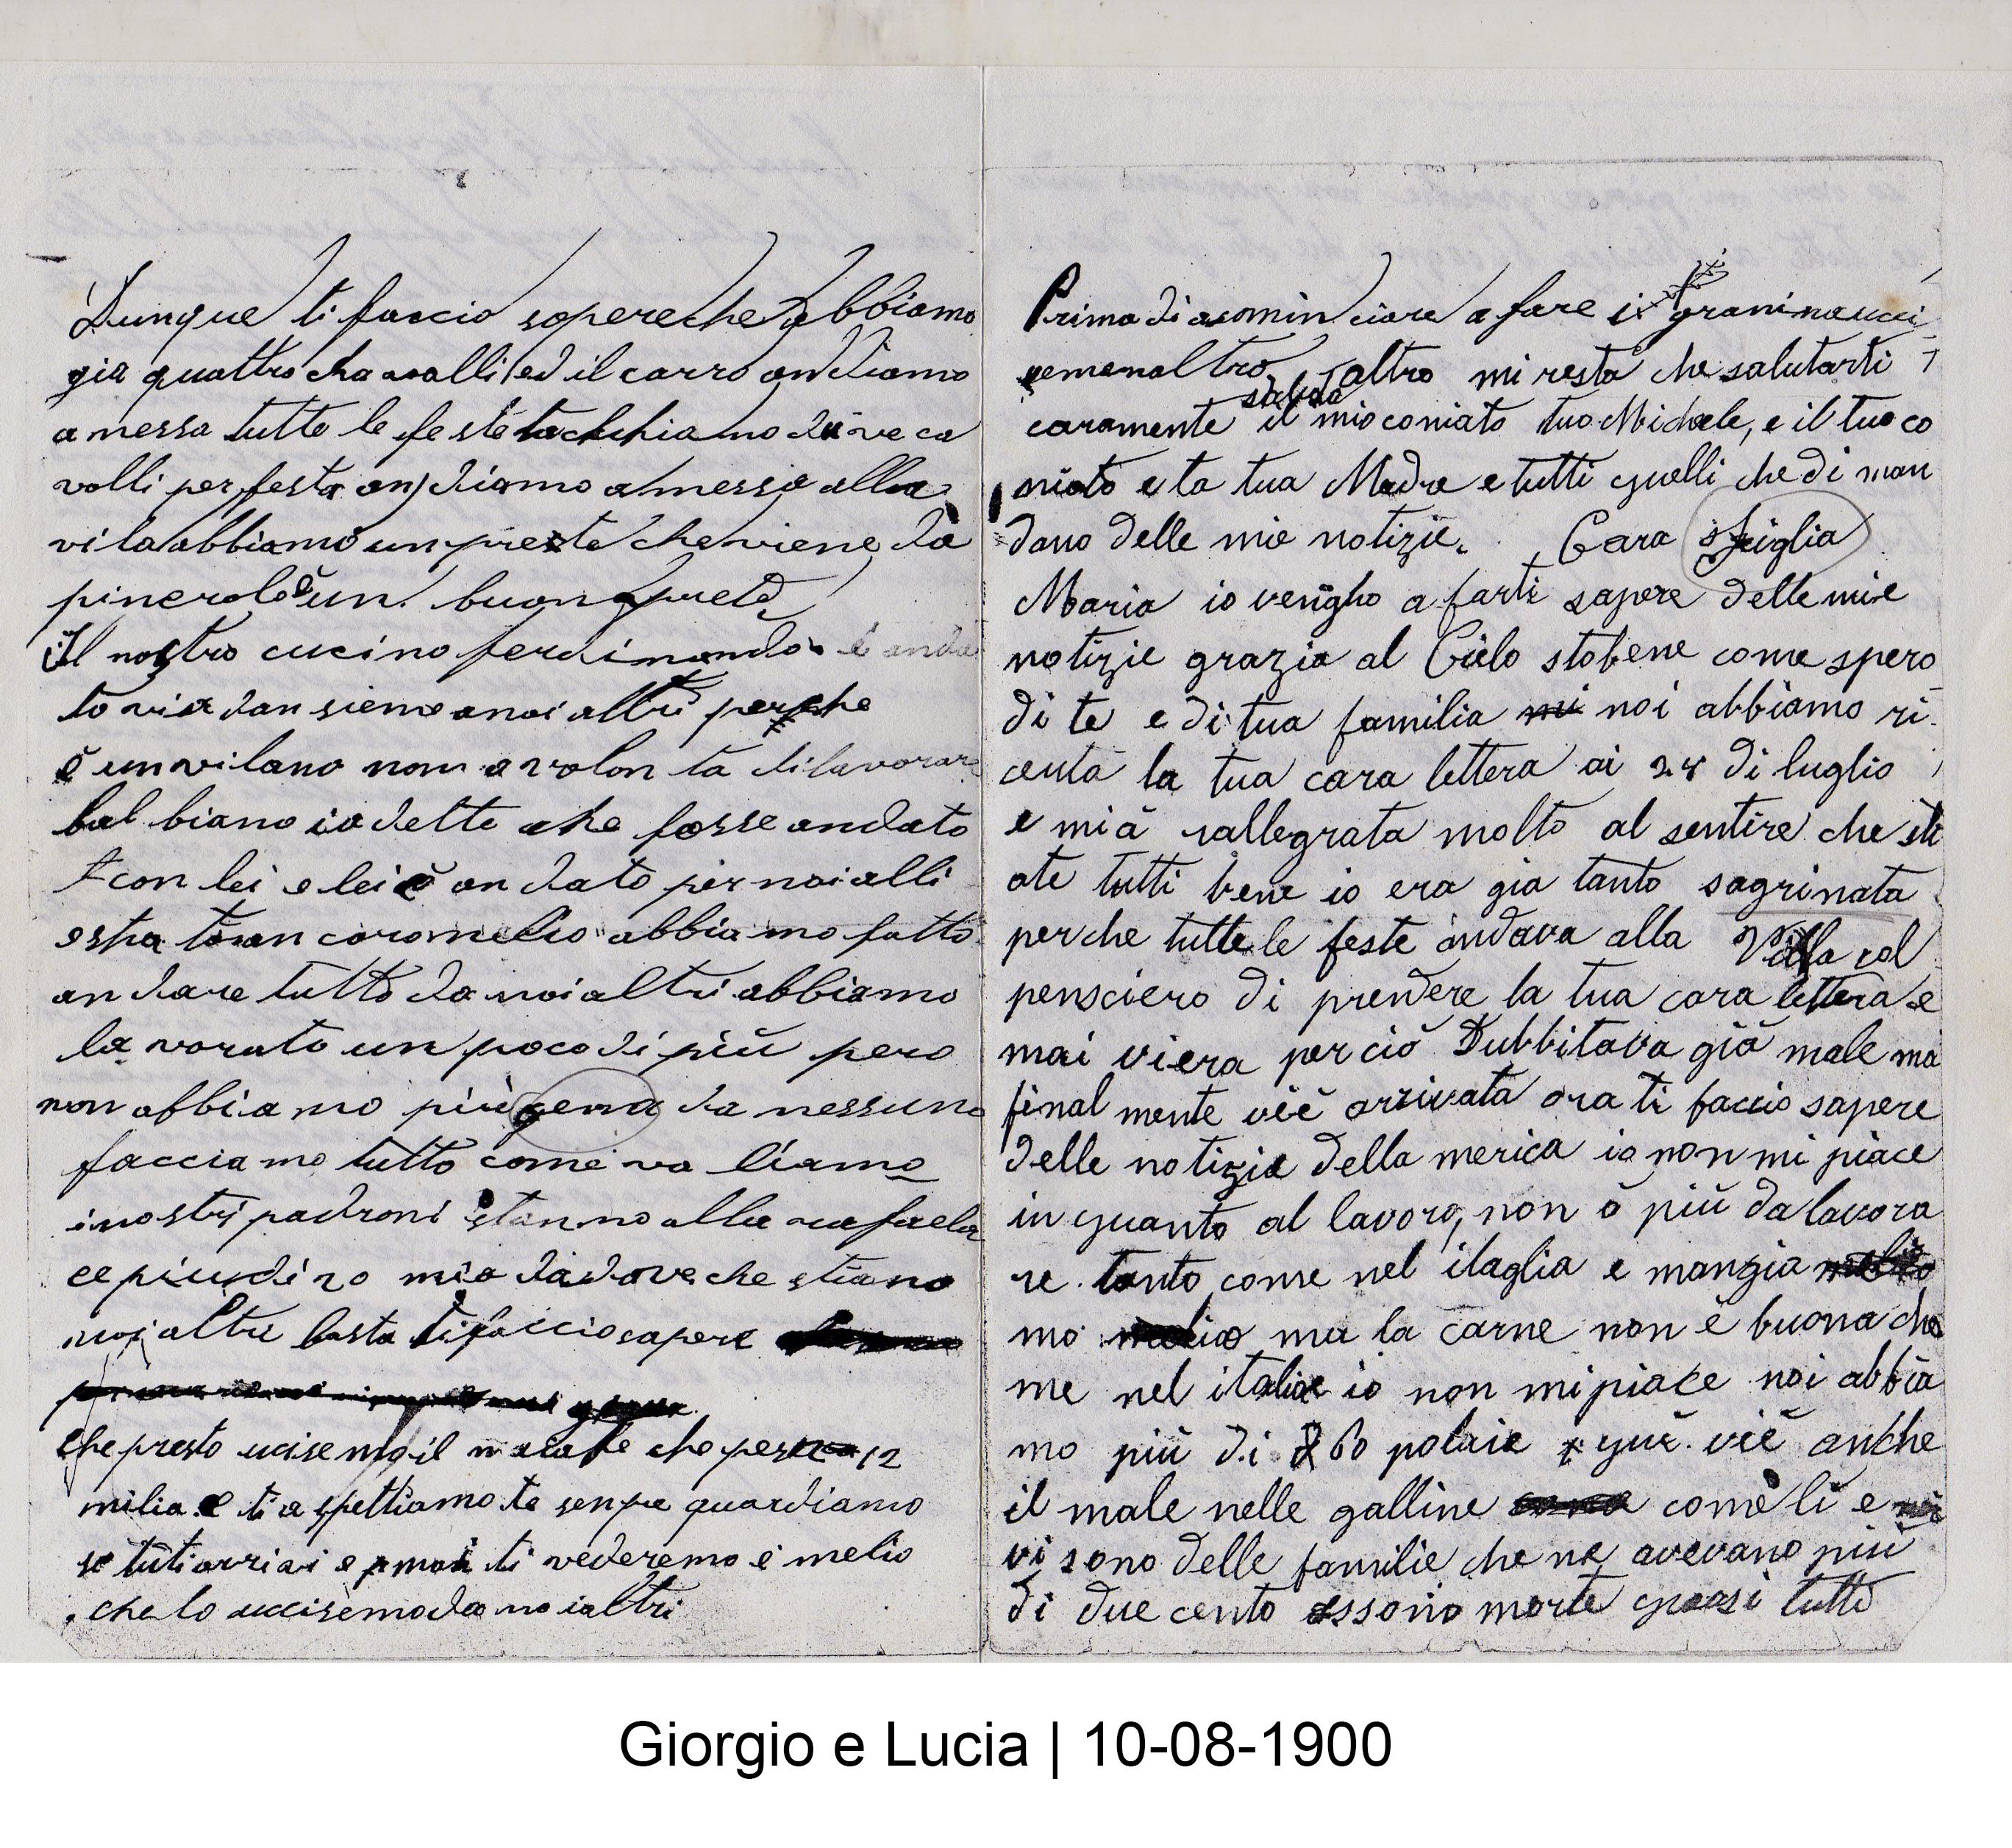 Dunque ti faccio sapere che abbiamo
gia quattro chavalli ed il carro andiamo
a messa tutte le feste tachhiamo due ca
valli per festa andiamo a messa alla
vila abbiamo un prete che viene da
pinerolo è un buon prete
Il nostro cucino ferdinando è anda
to via dansieme a noi altri perche
è un vilano non a volonta di lavorar
balbiano ia dette che fosse andato
con lei e lei è andato per noi alli
estato an caromelio abbiamo fatto
andare tutto da noi altri abbiamo
la vorato un poco di più pero
non abbiamo più gena da nessuno
facciamo tutto come va liamo
i nostri padroni stanno alla rafaela
ce piu di 20 mia da dove che stiano
noi altri basta ti faccio sapere
che presto ucisemo il maiale che pesa 12
milia e ti aspettiamo te senpre guardiamo
se tuti arrivi e mai ti vederemo è melio
che lo uccisemo da noi altri
Prima di acomin ciare a fare i granimaucci
altro mi resta che salutarti
caramente saluda il mio coniato tuo Michele, e il tuo co
niato e ta tua Madre e tutti quelli che di man
dano delle mie notizie. Cara figlia
Maria io vengho a farti sapere delle mie
notizie grazia al Cielo stobene come spero
di te e di tua familia noi abbiamo ri
ceuta la tua cara lettera ai 28 di luglio
e mi à rallegrata molto al sentire che sti
ate tutti bene io era gia tanto sagrinata
perche tutte le feste andava alla Villa col
pensciero di prendere la tua cara lettera e
mai viera perciò Dubbitava già male ma
final mente viè arrivata ora ti faccio sapere
delle notizie della merica io non mi piace
in quanto al lavoro, non ò più da lavora
re tanto come nel itaglia e mangia
mo melio ma la carne non è buona cho
me nel italia io non mi piace noi abbia
mo più di 60 polaie e quì viè anche
il male nelle galline come li e
vi sono delle familie che ne avevano più
di due cento essono morte quasi tutte
Giorgio e Lucia | 10-08-1900